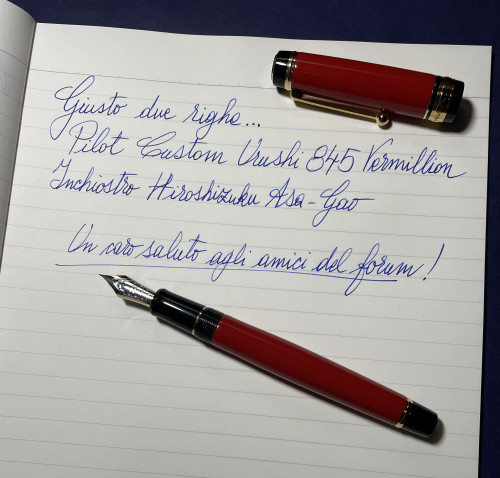 Giusto due righe...
Pilot Custom Urushi 845 Vermillion
Inchiostro Hiroshizuku Asa-Gao
Un caro saluto agli amici del forum!